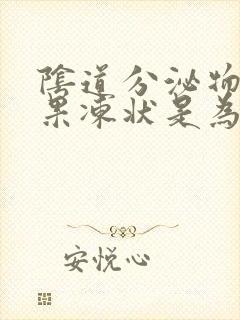 陰道分泌物
果凍狀是為
安悅心